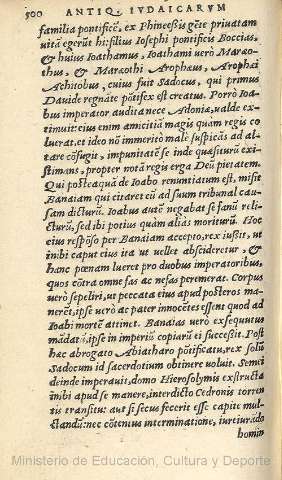 500 ANTIQ. IVDAICARVM
familia pontificē, ex Phineeßis gēte priuatam
uitā egerūt hi: filius Iosephi pontificis Boccias,
& huius Ioathamus, Ioathami uerò Maræo-
thus, & Maræothi Arophæus, Arophæi
Achitobus, cuius fuit Sadocus, qui primus
Dauide regnāte pōtifex est creatus. Porrò Ioa-
bus imperator audita nece Adoniæ, ualde ex-
timuit: eius enim amicitiā magis quàm regis co
luerat, et ideo nō immeritò malè suspicās ad al-
tare cōfugit, impunitatē se inde quæsiturū exi-
stimans, propter notā regis erga Deū pietatem.
Qui posteaquā de Ioabo renuntiatum est, misit
Banaiam qui citaret eū ad suum tribunal cau-
sam dicturū. Ioabus autē negabat se fanū reli-
cturū, sed ibi potius quàm alias moriturū. Hoc
eius respōso per Banaiam accepto, rex iußit, ut
inibi cum placita ut uellet abscideretur, &
hanc pœnam lueret pro duobus imperatoribus,
quos cōtra omne fas ac nefas peremerat. Corpus
uerò sepeliri, ut peccata eius apud posteros ma-
nerēt, ipse uerò ac pater innocētes essent quod ad
Ioabi mortē attinet. Banaias uerò exsequutus
mādatā, ipse in imperiū copiarū ei succeßit. Post
hac abrogato Abiatharo pōtificatu, rex solū
Sadocum id sacerdotium obtinere uoluit. Semei
deinde imperauit, domo Hierosolymis exstructa
inibi apud se manere, interdicto Cedronis torren
tis transitu: aut si secus fecerit esse capite mul-
ctandū: nec cōtemnus interminatione, iureiurādo
homin
Ministerio de Educación, Cultura y Deporte